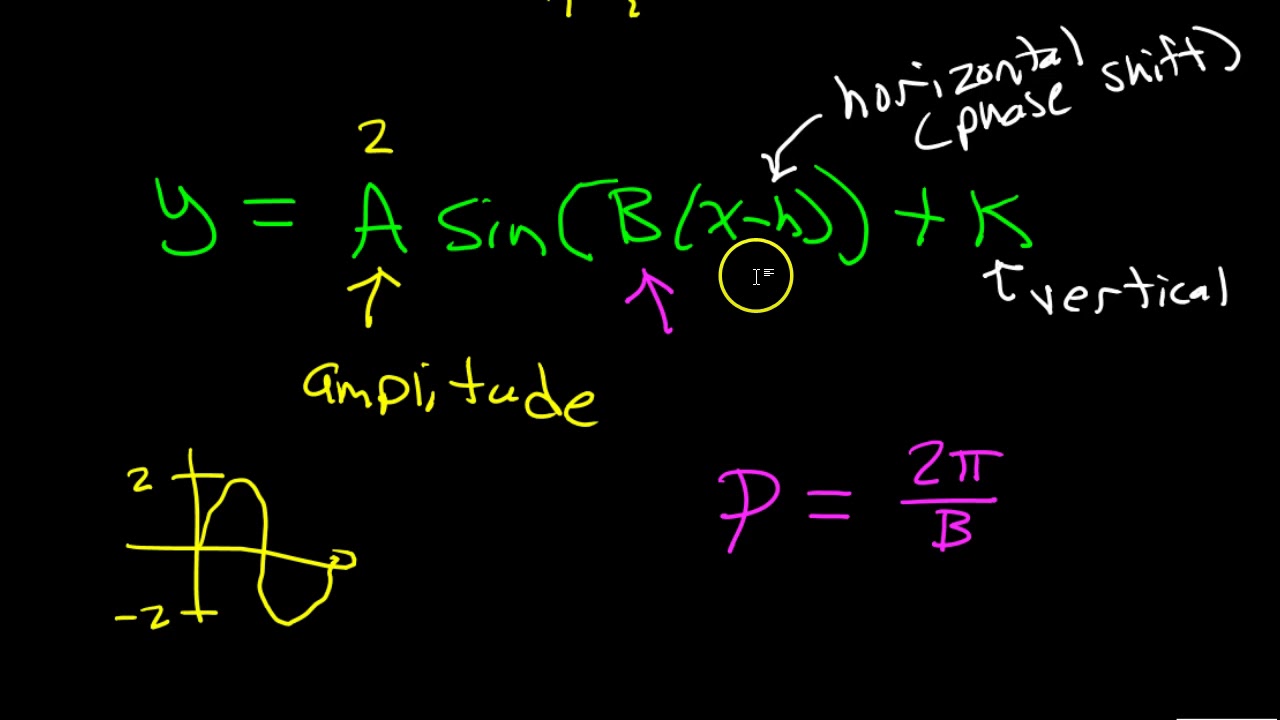 horizontal
(phase shift)
2
y = A sin(B(x-h)) + K
vertical
amplitude
2
-2
P = 2π/B